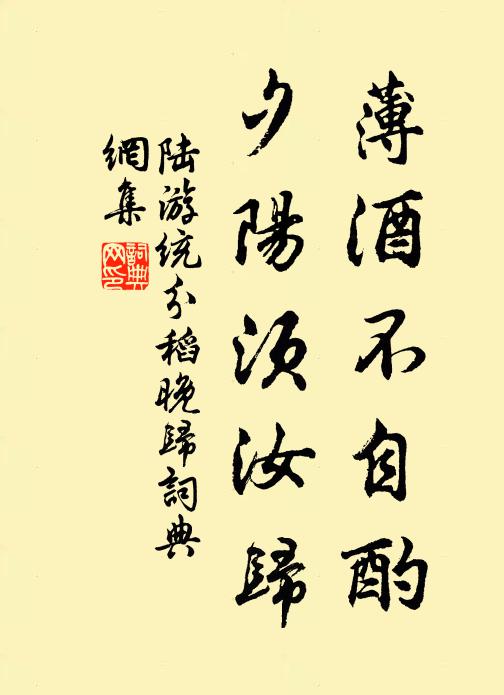 薄酒不自酌
夕陽須汝歸
陆游统分稻晚歸詞典
網集
詞典网印